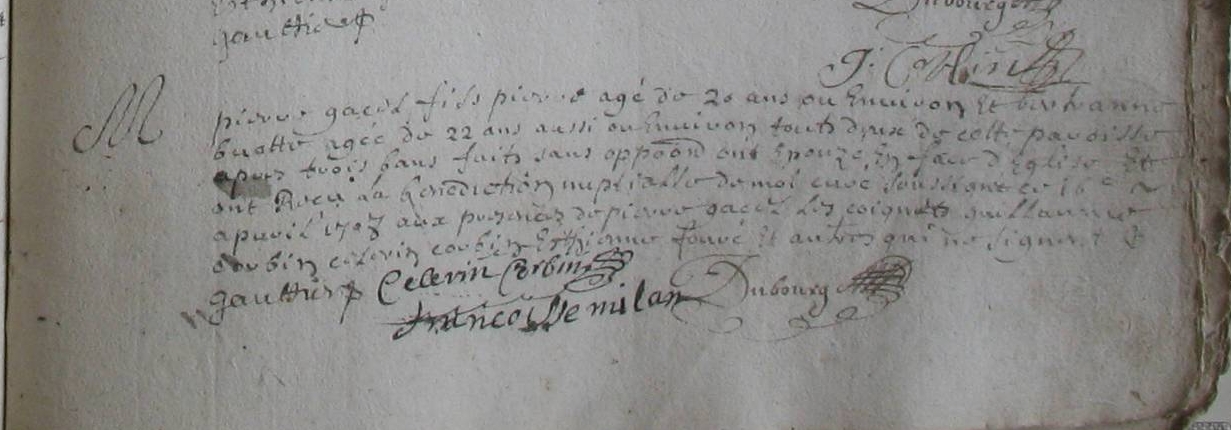 gauttier
Dubourg
J. Collin
M
pierre gacel fils pierre agé de 20 ans ou Environ Et
buotte agée de 22 ans aussi ou Environ touts deux de cette parroisse
apres trois bans faits sans oppoõn ont Epouzé En face d'Eglise Et
ont Receu la benediction nuptialle de moi curé soussigné ce 16e
apvril aux presences de pierre gacel guillaume
corbin celerin corbin Esthienne fouré Et autres qui ne signent
gauttier Celerin Corbin Dubourg
francois Semilan